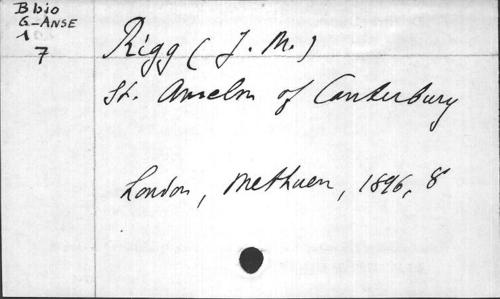 B bio
G-ANSE
1
7
Rigg (J. M.)
St. Anselm of Canterbury
London, Methuen, 1896, 8°